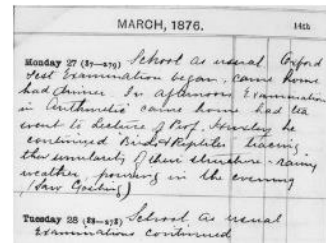 MARCH, 1876.
14th
Monday 27 (87—279) School as usual Oxford
Test Examination began, came home
had dinner. In afternoon Examination
in Arithmetic came home had tea
went to Lecture of Prof. Huxley he
continued Birds & Reptiles tracing
the similarity of their structure - rainy
weather, pouring in the evening
(Saw Gosling)
Tuesday 28 (88—278) School as usual
Examinations continued